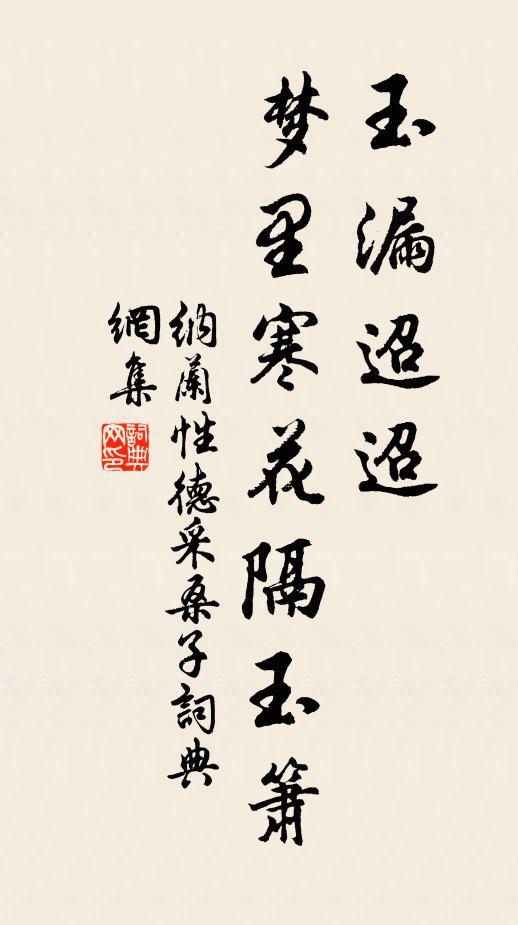 玉漏迢迢
梦里寒花隔玉箫
纳兰性德采桑子詞典
網集
詞典
网印